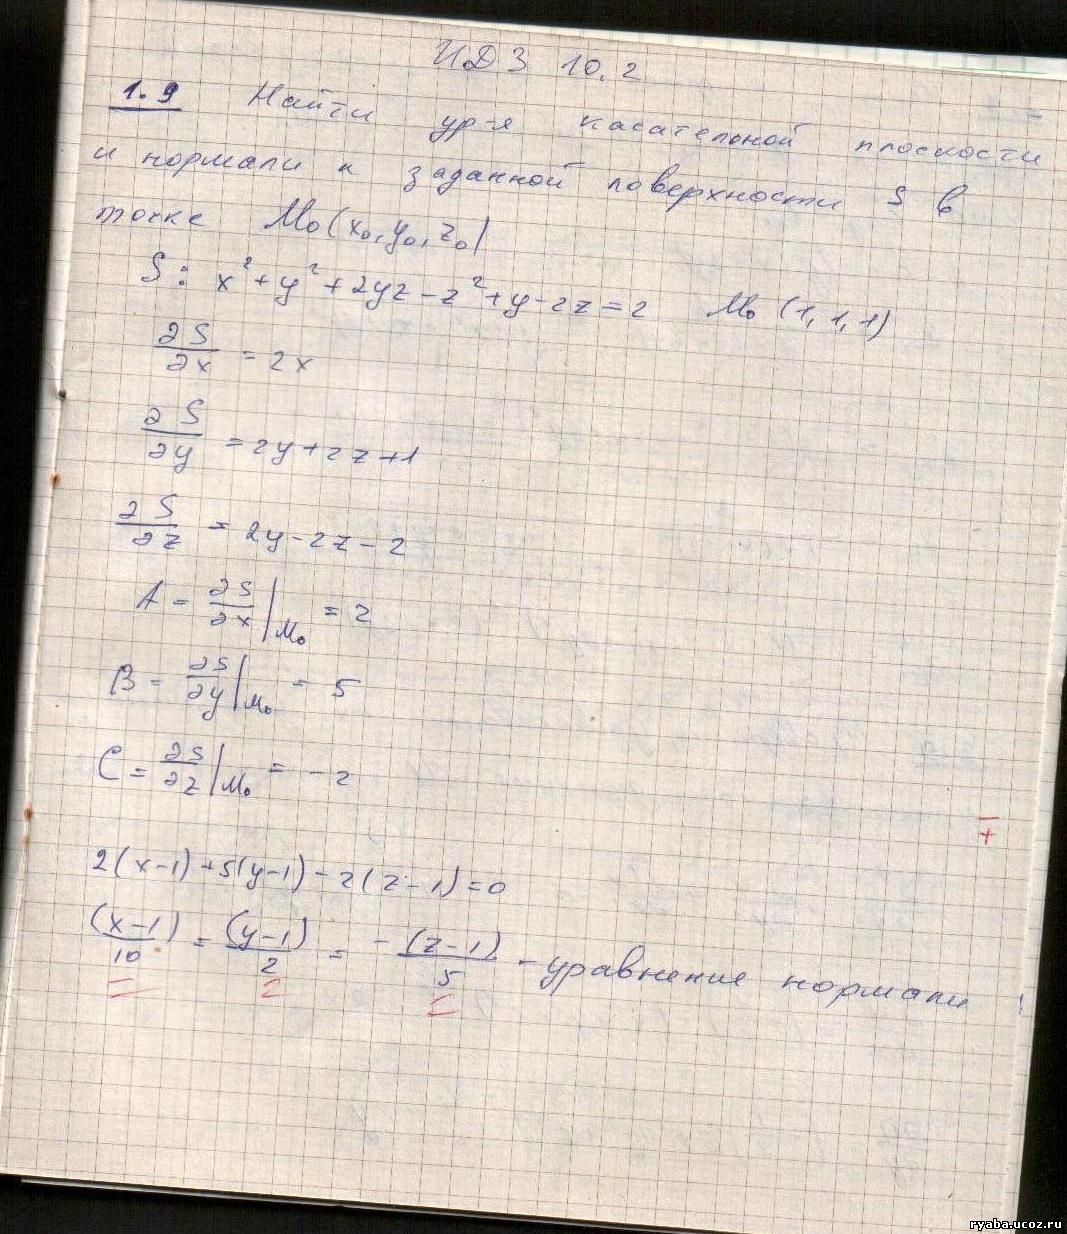 ИДЗ 10.2
1.9 Найти ур-я касательной плоскости
и нормали к заданной поверхности S в
точке M₀(x₀, y₀, z₀)
S: x² + y² + 2yz - z² + y - 2z = 2 M₀ (1, 1, 1)
∂S/∂x = 2x
∂S/∂y = 2y + 2z + 1
∂S/∂z = 2y - 2z - 2
A = ∂S/∂x |M₀ = 2
B = ∂S/∂y |M₀ = 5
C = ∂S/∂z |M₀ = -2
2(x-1) + 5(y-1) - 2(z-1) = 0
(x-1)/10 = (y-1)/2 = -(z-1)/5 - уравнение нормали
ryaba.ucoz.ru